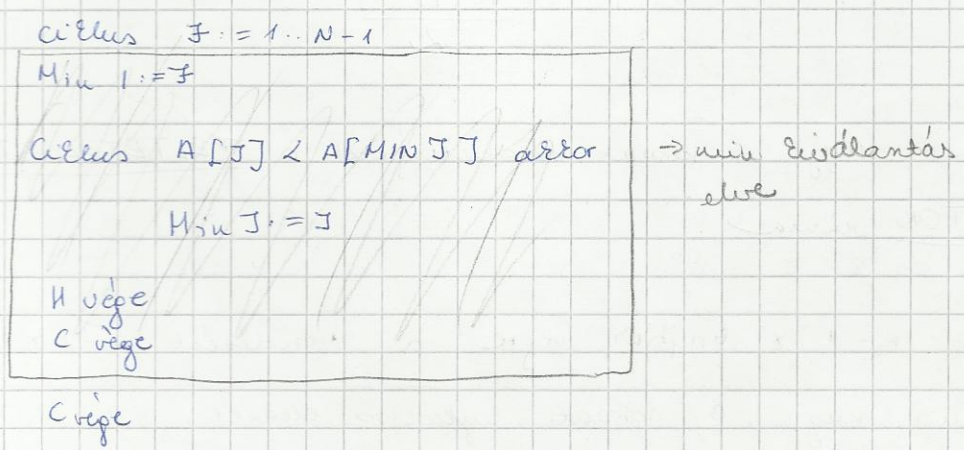 Ciklus J := 1.. N-1
Min I := J
Ciklus A[J] < A[MIN J] akkor → min kiválantás
elve
Min J := J
H vége
C vége
C vége